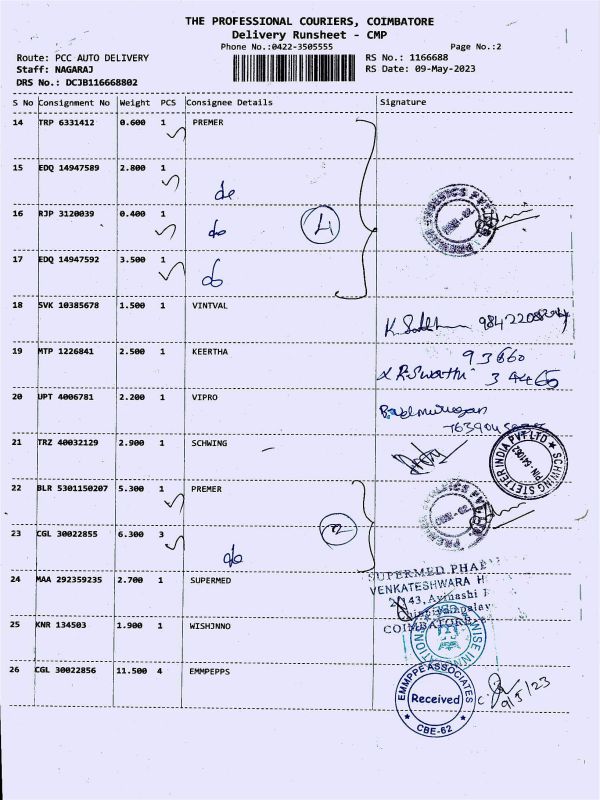 THE PROFESSIONAL COURIERS, COIMBATORE
Delivery Runsheet - CMP
Phone No.:0422-3505555
Page No.:2
Route: PCC AUTO DELIVERY
RS No.: 1166688
Staff: NAGARAJ
RS Date: 09-May-2023
DRS No.: DCJB116668802
S No Consignment No Weight PCS Consignee Details Signature
14 TRP 6331412 0.600 1 PREMER
15 EDQ 14947589 2.800 1
do
16 RJP 3120039 0.400 1
do
4
17 EDQ 14947592 3.500 1
do
18 SVK 10385678 1.500 1 VINTVAL
19 MTP 1226841 2.500 1 KEERTHA
93660
R. Swathi 34466
20 UPT 4006781 2.200 1 VIPRO
21 TRZ 40032129 2.900 1 SCHWING
SCHWING STETTER INDIA PVT LTD
22 BLR 5301150207 5.300 1 PREMER
23 CGL 30022855 6.300 3
2
do
24 MAA 292359235 2.700 1 SUPERMED
SUPERMED PHAR
VENKATESHWARA H
43, Avinashi
COIMBATORE
25 KNR 134503 1.900 1 WISHJNNO
26 CGL 30022856 11.500 4 EMMPEPPS
EMMPPE ASSOCIATES
Received
CBE-62
9/5/23